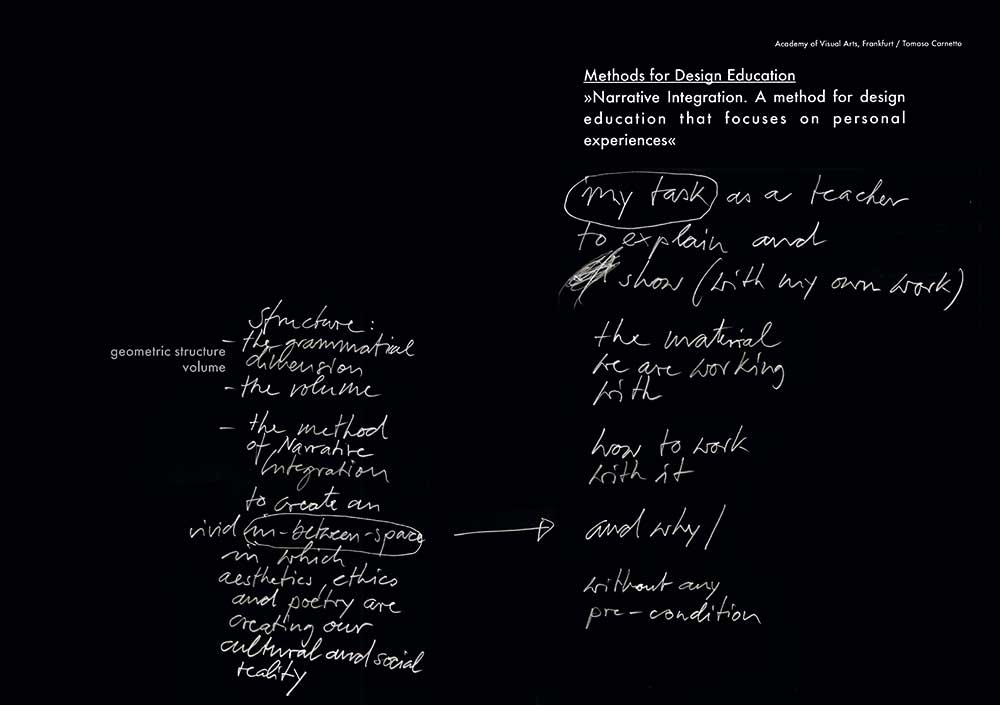 Academy of Visual Arts, Frankfurt / Tomaso Carnetto
Methods for Design Education
»Narrative Integration. A method for design
education that focuses on personal
experiences«
my task as a teacher
to explain and
show (with my own work)
the material
we are working
with
how to work
with it
and why /
without any
pre-condition
geometric structure
volume
structure:
- the grammatical
dimension
- the volume
- the method
of Narrative
Integration
to create an
vivid in-between-space
in which
aesthetics, ethics
and poetry are
creating our
cultural and social
reality